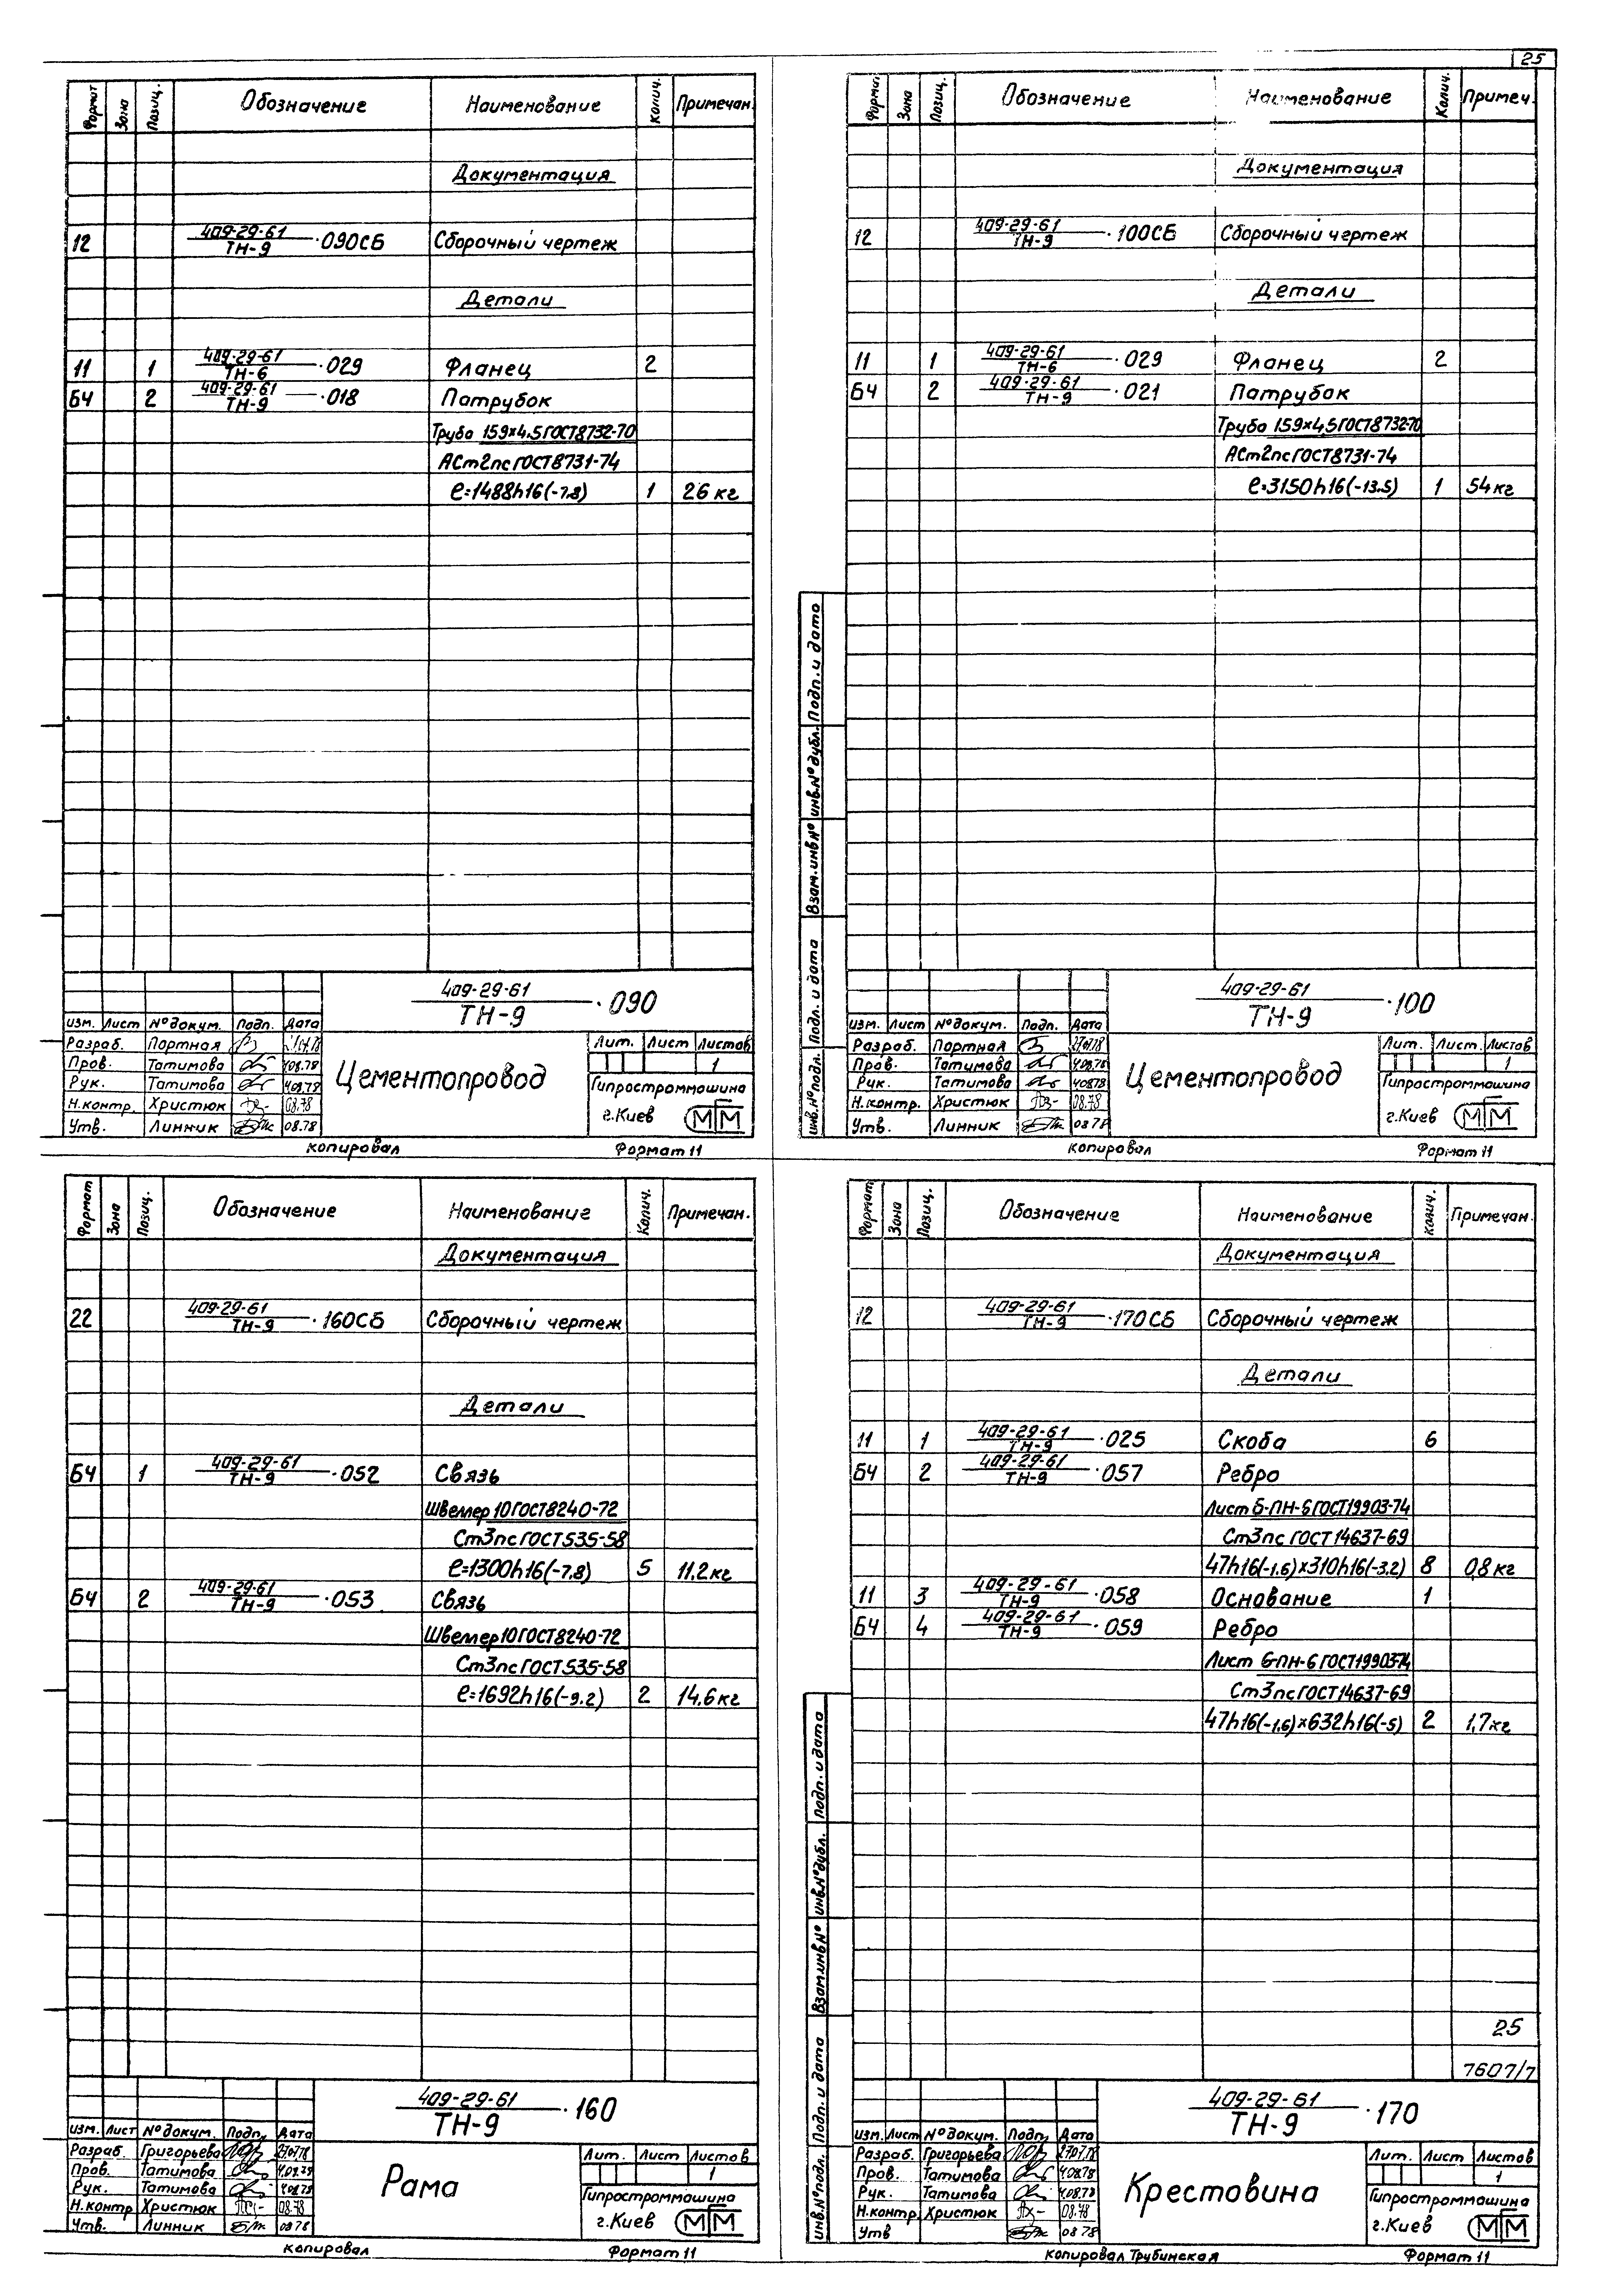 25
Формат Зона Позиц. Обозначение Наименование Колич. Примечан.
Документация
12 409-29-61/ТН-9 ·090СБ Сборочный чертеж
Детали
11 1 409-29-61/ТН-6 ·029 Фланец 2
БЧ 2 409-29-61/ТН-9 ·018 Патрубок
Труба 159×4,5 ГОСТ8732-70
АСт2пс ГОСТ8731-74
ℓ=1488h16(-7.8) 1 26 кг
409-29-61/ТН-9 ·090
Изм. Лист № докум. Подп. Дата
Разраб. Портная
Пров. Татимова 4.08.78
Рук. Татимова 4.08.78
Н.контр. Христюк 08.78
Утв. Линник 08.78
Цементопровод
Лит. Лист Листов
1
Гипростроммашина
г.Киев
Копировал Формат 11
Формат Зона Позиц. Обозначение Наименование Колич. Примеч.
Документация
12 409-29-61/ТН-9 ·100СБ Сборочный чертеж
Детали
11 1 409-29-61/ТН-6 ·029 Фланец 2
БЧ 2 409-29-61/ТН-9 ·021 Патрубок
Труба 159×4,5 ГОСТ8732-70
АСт2пс ГОСТ8731-74
ℓ=3150h16(-13.5) 1 54 кг
Инв.№ подл. Подп. и дата Взам.инв№ Инв.№ дубл. Подп. и дата
409-29-61/ТН-9 ·100
Изм. Лист № докум. Подп. Дата
Разраб. Портная 27.07.78
Пров. Татимова 4.08.78
Рук. Татимова 4.08.78
Н.контр. Христюк 08.78
Утв. Линник 08.78
Цементопровод
Лит. Лист Листов
1
Гипростроммашина
г.Киев
Копировал Формат 11
Формат Зона Позиц. Обозначение Наименование Колич. Примечан.
Документация
22 409-29-61/ТН-9 ·160СБ Сборочный чертеж
Детали
БЧ 1 409-29-61/ТН-9 ·052 Связь
Швеллер 10 ГОСТ8240-72
Ст3пс ГОСТ535-58
ℓ=1300h16(-7,8) 5 11.2 кг
БЧ 2 409-29-61/ТН-9 ·053 Связь
Швеллер 10 ГОСТ8240-72
Ст3пс ГОСТ535-58
ℓ=1692h16(-9.2) 2 14.6 кг
409-29-61/ТН-9 ·160
Изм. Лист № докум. Подп. Дата
Разраб. Григорьева 27.07.78
Пров. Татимова
Рук. Татимова 4.08.78
Н.контр Христюк 08.78
Утв. Линник 08.78
Рама
Лит. Лист Листов
1
Гипростроммашина
г.Киев
Копировал Формат 11
Формат Зона Позиц. Обозначение Наименование Колич. Примечан.
Документация
12 409-29-61/ТН-9 ·170СБ Сборочный чертеж
Детали
11 1 409-29-61/ТН-9 ·025 Скоба 6
БЧ 2 409-29-61/ТН-9 ·057 Ребро
Лист Б-ПН-6 ГОСТ19903-74
Ст3пс ГОСТ14637-69
47h16(-1.6)×310h16(-3.2) 8 0,8 кг
11 3 409-29-61/ТН-9 ·058 Основание 1
БЧ 4 409-29-61/ТН-9 ·059 Ребро
Лист Б-ПН-6 ГОСТ19903-74
Ст3пс ГОСТ14637-69
47h16(-1,6)×632h16(-5) 2 1,7 кг
25
7607/7
Инв.№ подл. Подп. и дата Взам.инв№ Инв.№ дубл. Подп. и дата
409-29-61/ТН-9 ·170
Изм. Лист № докум. Подп. Дата
Разраб. Григорьева 27.07.78
Пров. Татимова 4.08.78
Рук. Татимова 4.08.78
Н.контр. Христюк 08.78
Утв 08.78
Крестовина
Лит. Лист Листов
1
Гипростроммашина
г.Киев
Копировал Трубинская Формат 11